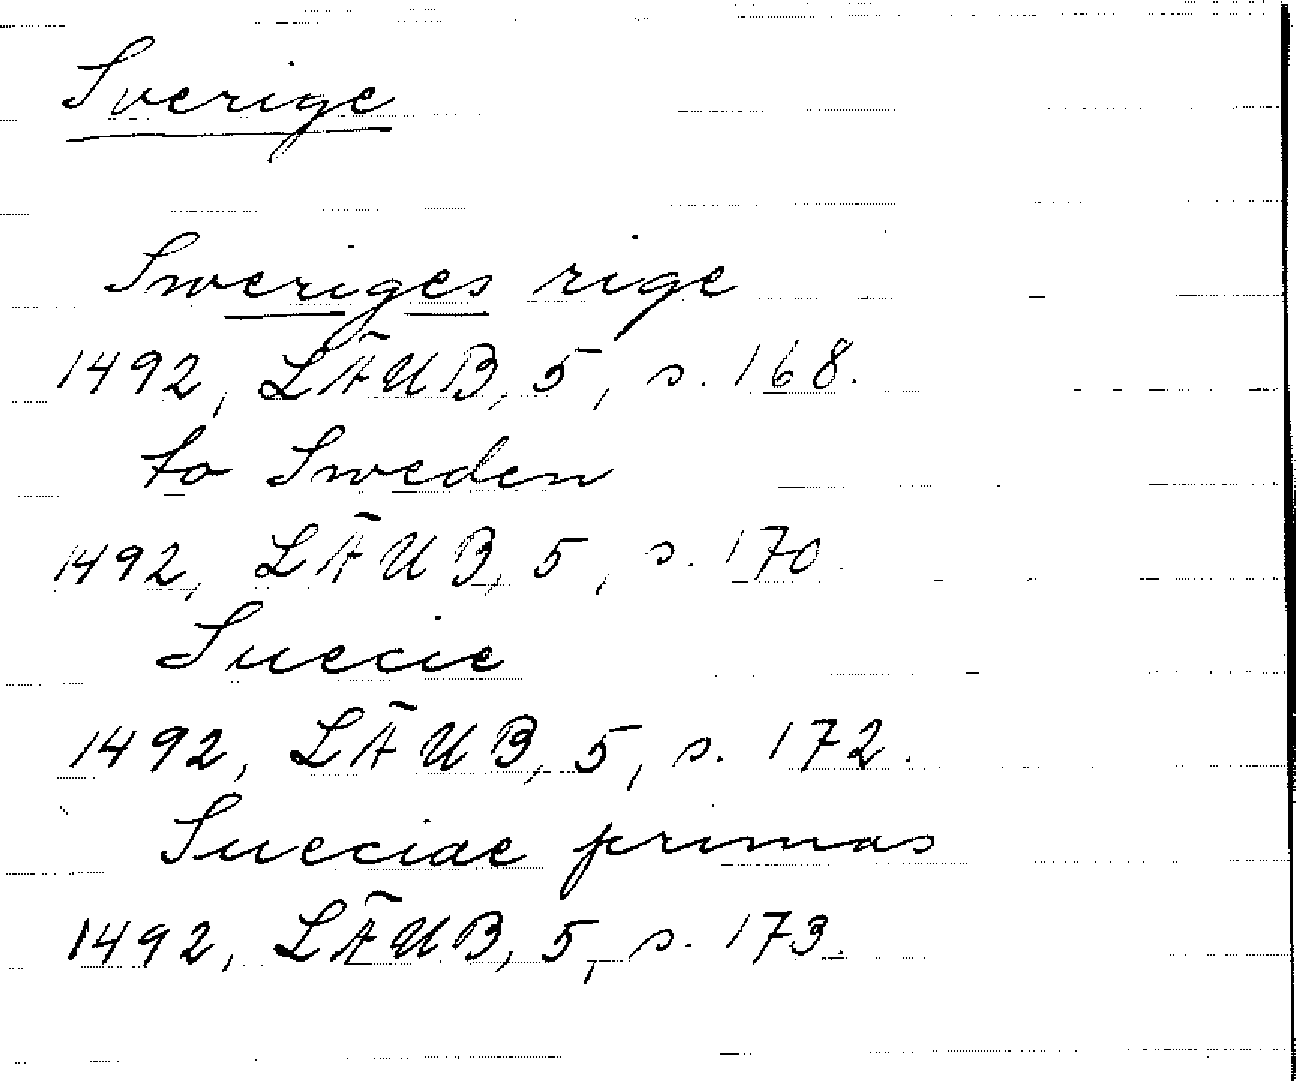 Sverige
Sweriges rige
1492, LÄUB, 5, s. 168.
to Sweden
1492, LÄUB, 5, s. 170
Suecie
1492, LÄUB, 5, s. 172.
Sueciae primas
1492, LÄUB, 5, s. 173.